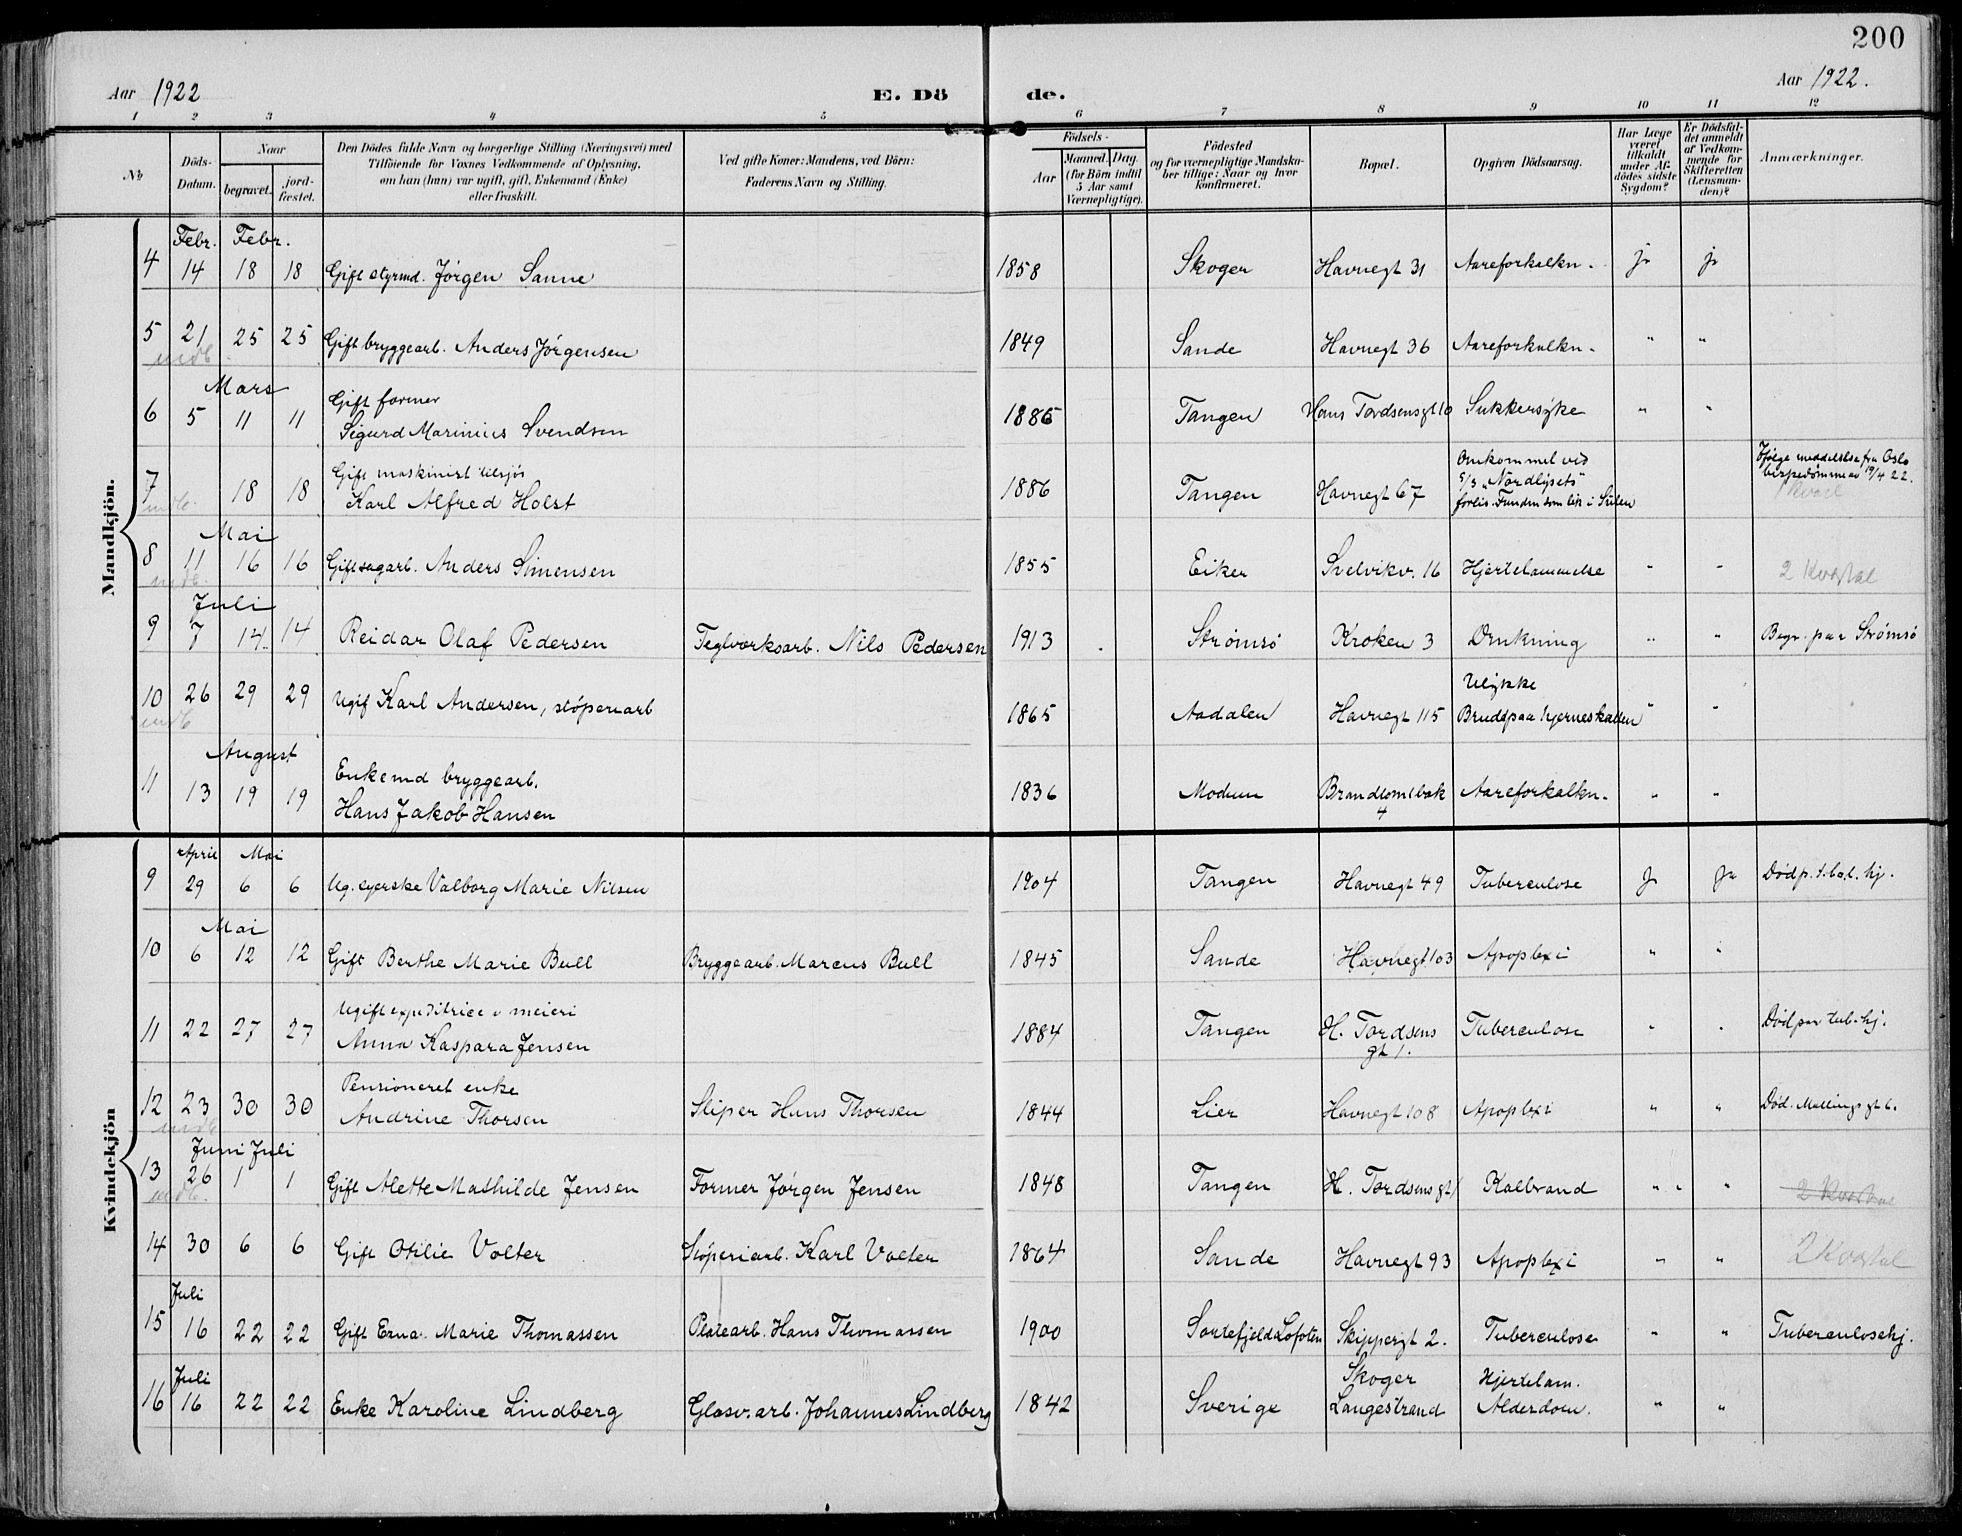 200
Aar 1922
E. Dö
de.
Aar 1922.
1 2 3 4 5 6 7 8 9 10 11 12
№
Döds-
Datum.
Naar
begravet.
jord-
fæstet.
Den Dödes fulde Navn og borgerlige Stilling (Næringsvei) med
Tilföiende for Voxnes Vedkommende af Oplysning,
om han (hun) var ugift, gift, Enkemand (Enke)
eller fraskilt.
Ved gifte Koner: Mandens, ved Börn:
Faderens Navn og Stilling.
Födsels-
Aar
Maaned. Dag.
(for Börn indtil
5 Aar samt
Værnepligtige).
Födested
og for værnepligtige Mandska-
ber tillige: Naar og hvor
konfirmeret.
Bopæl.
Opgiven Dödsaarsag.
Har Læge
været
tilkaldt
under Af-
dödes sidste
Sygdom?
Er Dödsfal-
det anmeldt
af Vedkom-
mende for
Skifteretten
(Lensman-
den)?
Anmærkninger.
Mandkjön.
Febr. Febr.
4 14 18 18 Gift styrmd. Jórgen Sanne 1858 Skoger Havnegt 31 Aareforkalkn. ja ja
5 21 25 25 Gift bryggearb. Anders Jórgensen 1849 Sande Havnegt 36 Aareforkalkn. " "
indb.
Mars
Gift former
6 5 11 11 Sigurd Marinius Svendsen 1886 Tangen Hans Tordsensgt 10 Sukkersyke " "
Gift maskinist tilsjós
7 18 18 Karl Alfred Holst 1886 Tangen Havnegt 67
indb.
Omkommet ved
5/3 "Nordlysets"
forlis. Funden som lik i
Ifólge meddelelse fra Oslo
bispedómme av 19/4 22.
1 Kvart
Mai
8 11 16 16 Gift sagarb. Anders Simensen 1855 Eiker Svelvikv. 16 Hjertelammelse " " 2 Kvartal
indb.
Juli
9 7 14 14 Reidar Olaf Pedersen Teglverksarb. Nils Pedersen 1913 Strómsó Kroken 3 Drukning " " Begr. paa Strómsó
10 26 29 29 Ugif Karl Andersen, stóperiarb 1865 Aadalen Havnegt 115
indb
Ulykke
Brudd paa hjerneskallen " "
August
Enkemd bryggearb.
11 13 19 19 Hans Jakob Hansen 1836 Modum Aareforkalkn. " "
4
Kvindekjön
April Mai
9 29 6 6 Ug. syerske Valborg Marie Nilsen 1904 Tangen Havnegt 49 Tuberculose ja ja Död p.
Mai
10 6 12 12 Gift Berthe Marie Bull Bryggearb. Marcus Bull 1845 Sande Havnegt 103 Apoplexi " "
Ugift expeditrice i meieri
11 22 27 27 Anna Kaspara Jensen 1884 Tangen H. Tordsens Tuberculose " " Död paa tub. hj.
gt 1.
Pensioneret enke
12 23 30 30 Andrine Thorsen Sliper Hans Thorsen 1844 Lier Havnegt 108 Apoplexi " " Död. Mallings gt 6.
indb
Juni Juli
13 26 1 1 Gift Alette Mathilde Jensen Former Jórgen Jensen 1848 Tangen H. Tordsens gt 1 Kolbrand " " " 2 Kvartal
indb.
14 30 6 6 Gift Otilie Volter Stóperiarb. Karl Volter 1864 Sande Havnegt 93 Apoplexi " " 2 Kvartal
Juli
15 16 22 22 Gift Erna Marie Thomassen Platearb. Hans Thomassen 1900 Sortefjeld Lofoten Skippergt 2. Tuberculose " " Tuberculosehj.
Juli
16 16 22 22 Enke Karoline Lindberg Glasv. arb. Johannes Lindberg 1842 Sverige
Skoger
Langestrand
Hjertelam.
Alderdom. " "